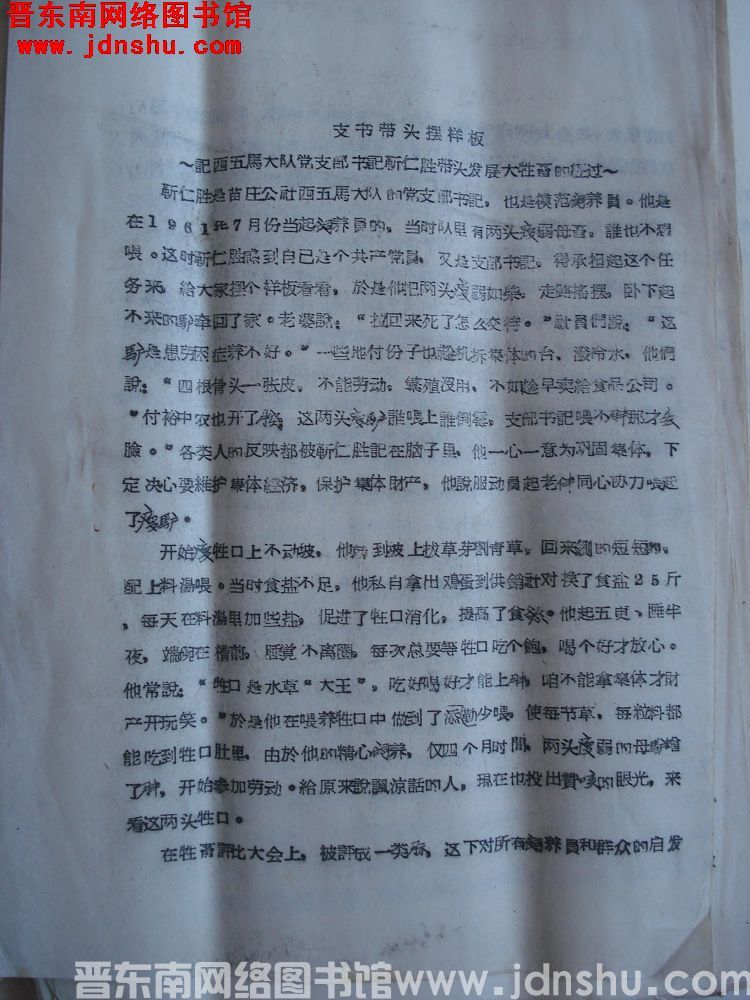 晋东南网络图书馆
www.jdnshu.com
支书带头摆样板
～記西五馬大队党支部书記靳仁胜带头发展大牲畜的经过～
靳仁胜是苗庄公社西五馬大队的党支部书記，也是模范飼养員。他是
在1961年7月份当起飼养員的，当时队里有两头瘦弱母畜，誰也不愿
喂。这时靳仁胜感到自己是个共产党員，又是支部书記，得承担起这个任
务来，給大家摆个样板看看，於是他把两头瘦弱如柴，走路搖摆，卧下起
不来的馿牵回了家。老婆說：“拉回来死了怎么交待。”社員們說：“这
馿是患劳困症养不好。”一些地付份子也趁机拆集体的台，潑冷水，他們
說：“四根骨头一张皮，不能劳动，繁殖没用，不如趁早卖給食品公司。
“付裕中农也开了松，这两头瘦馿誰喂上誰倒霉，支部书記喂不利那才丢
臉。”各类人的反映都被靳仁胜記在脑子里，他一心一意为巩固集体，下
定决心要維护集体經济，保护集体財产，他說服动員起老伴同心协力喂起
了瘦馿。
开始瘦牲口上不动坡，他就到坡上拔草芽割青草，回来鍘的短短的，
配上料湯喂。当时食盐不足，他私自拿出鸡蛋到供銷社对换了食盐25斤
，每天在料湯里加些盐，促进了牲口消化，提高了食欲。他起五更、睡半
夜，端碗在槽前，睡覚不离圈，每次总要等牲口吃个飽，喝个好才放心。
他常說：“牲口是水草“大王”，吃好喝好才能上膘，咱不能拿集体才財
产开玩笑。”於是他在喂养牲口中做到了添勤少喂，使每节草，每粒料都
能吃到牲口肚里，由於他的精心飼养，仅四个月时間，两头瘦弱的母馿增
了膘，开始参加劳动。給原来說諷凉話的人，現在也投出贊 的眼光，来
看这两头牲口。
在牲畜評比大会上，被評成一类膘，这下对所有飼养員和群众的启发
晋东南网络图书馆www.jdnshu.com